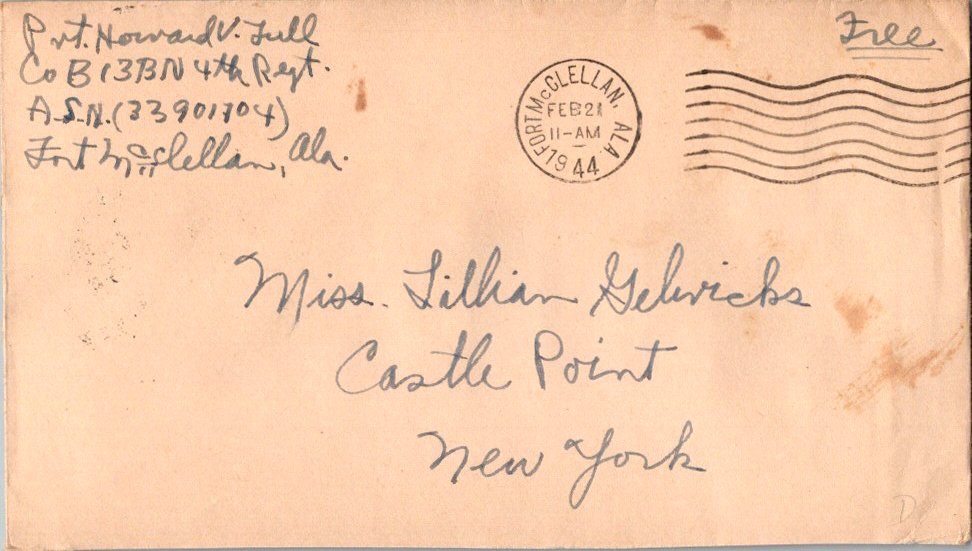 Pvt. Howard V. Tull
Co B 13 BN 4th Regt.
A.S.N. (33901704)
Fort McClellan, Ala.
Free
FORT McCLELLAN, ALA.
FEB 21
11-AM
1944
Miss. Lillian Gelwicks
Castle Point
New York
D